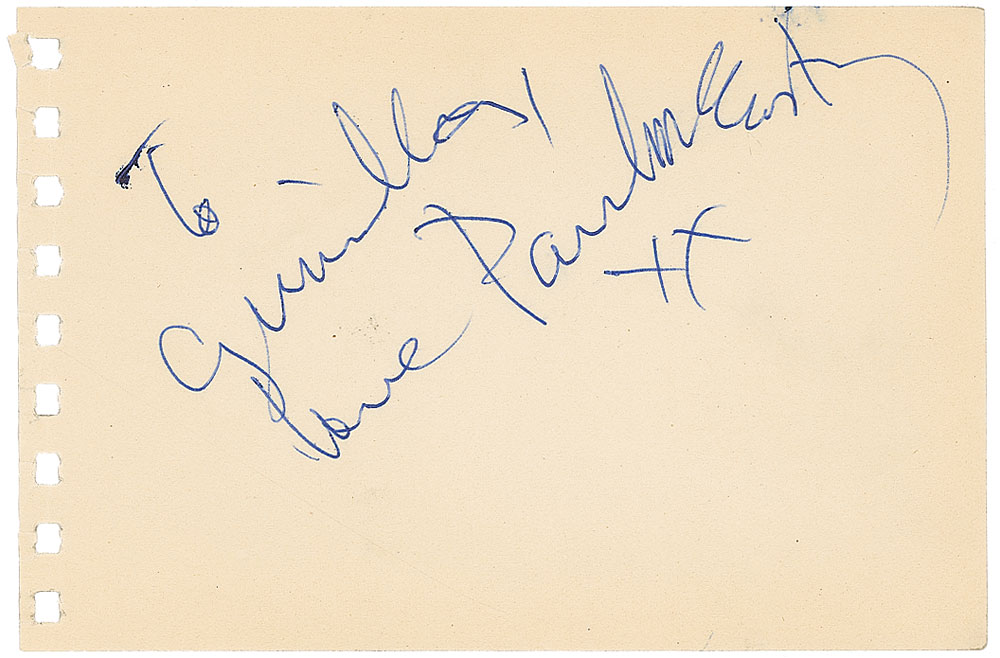 To
Gunilla,
love Paul McCartney
XX